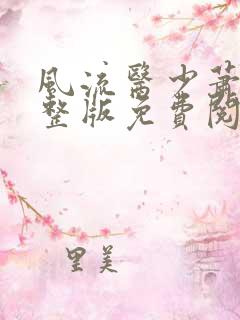 風流醫少葉
整版免費閱
里美